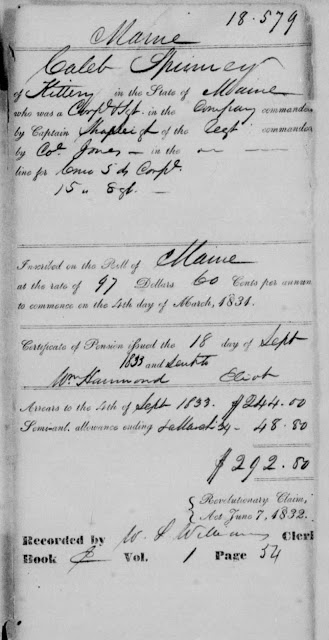 18.579
Maine
Caleb Spinney
of Kittery in the State of Maine
who was a Corpl & Sgt. in the Company commanded
by Captain Shapleigh of the Regt commanded
by Col Jones — in the — —
line for 6 mo 5 ds Corpl.
15 " Sgt. —
Inscribed on the Roll of Maine
at the rate of 97 Dollars 60 Cents per annum
to commence on the 4th day of March, 1831.
Certificate of Pension issued the 18 day of Sept
1833 and sent to
Wm Hammond Eliot
Arrears to the 4th of Sept 1833. $244.00
Semi-anl. allowance ending 4 March 34 - 48.80
$292.80
Revolutionary Claim,
Act June 7, 1832.
Recorded by W. L. Williams Clerk
Book Vol. 1 Page 54